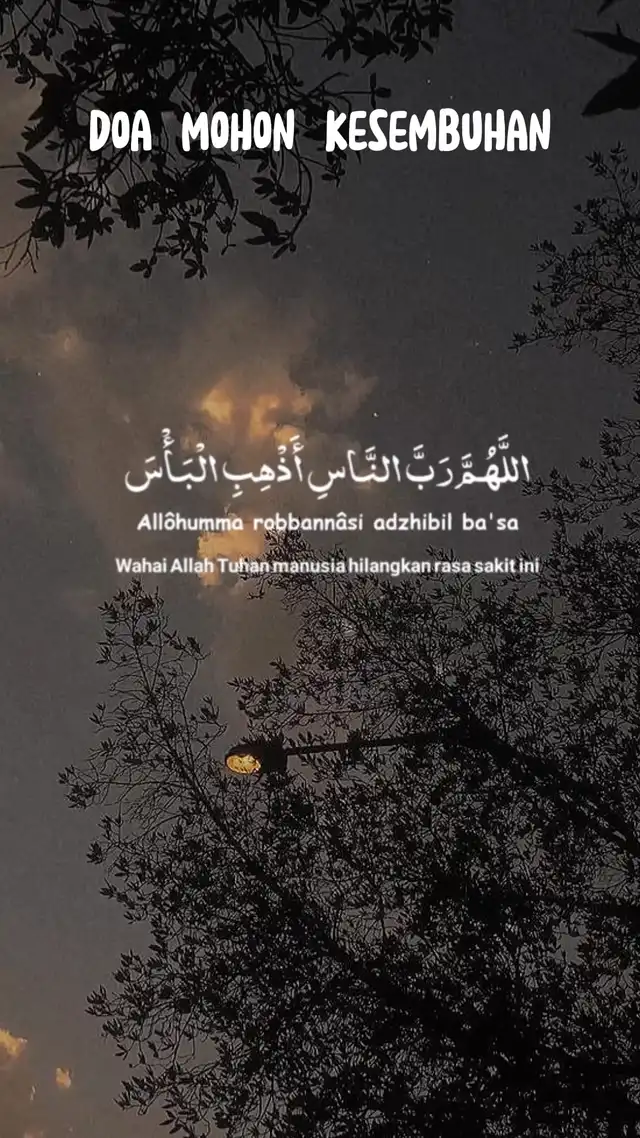 DOA MOHON KESEMBUHAN
اللَّهُمَّ رَبَّ النَّاسِ أَذْهِبِ الْبَأْسَ
Allôhumma robbannâsi adzhibil ba'sa
Wahai Allah Tuhan manusia hilangkan rasa sakit ini